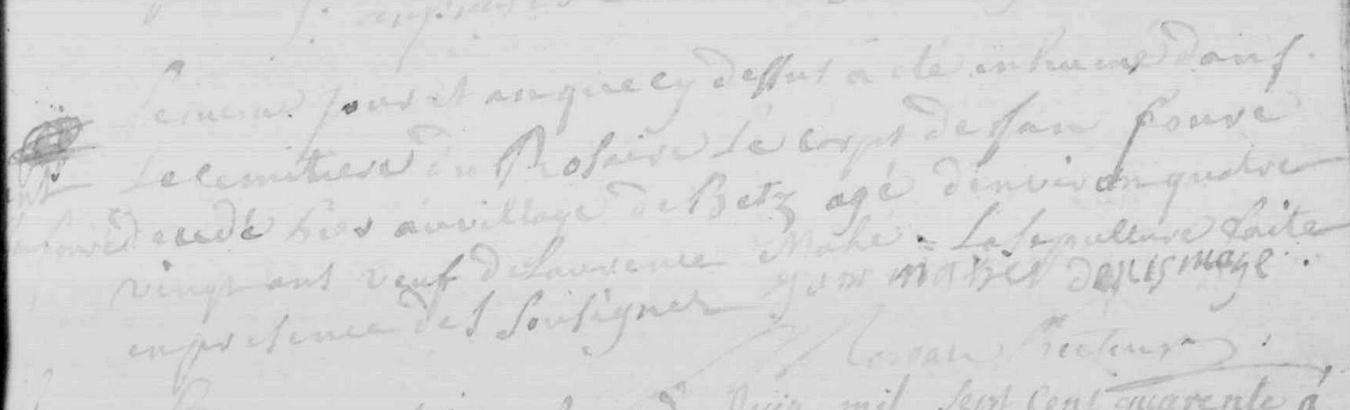 Le meme jour et an que cy dessus a été inhumé dans
Le cemitiere du Rosaire Le corps de Jan Fouré
decedé hier au village de Betz agé d'environ quatre
vingt ans veuf de Laurence Mahé. La Sepulture faite
en presence des Soussignez
Juin mil sept cent quarente à